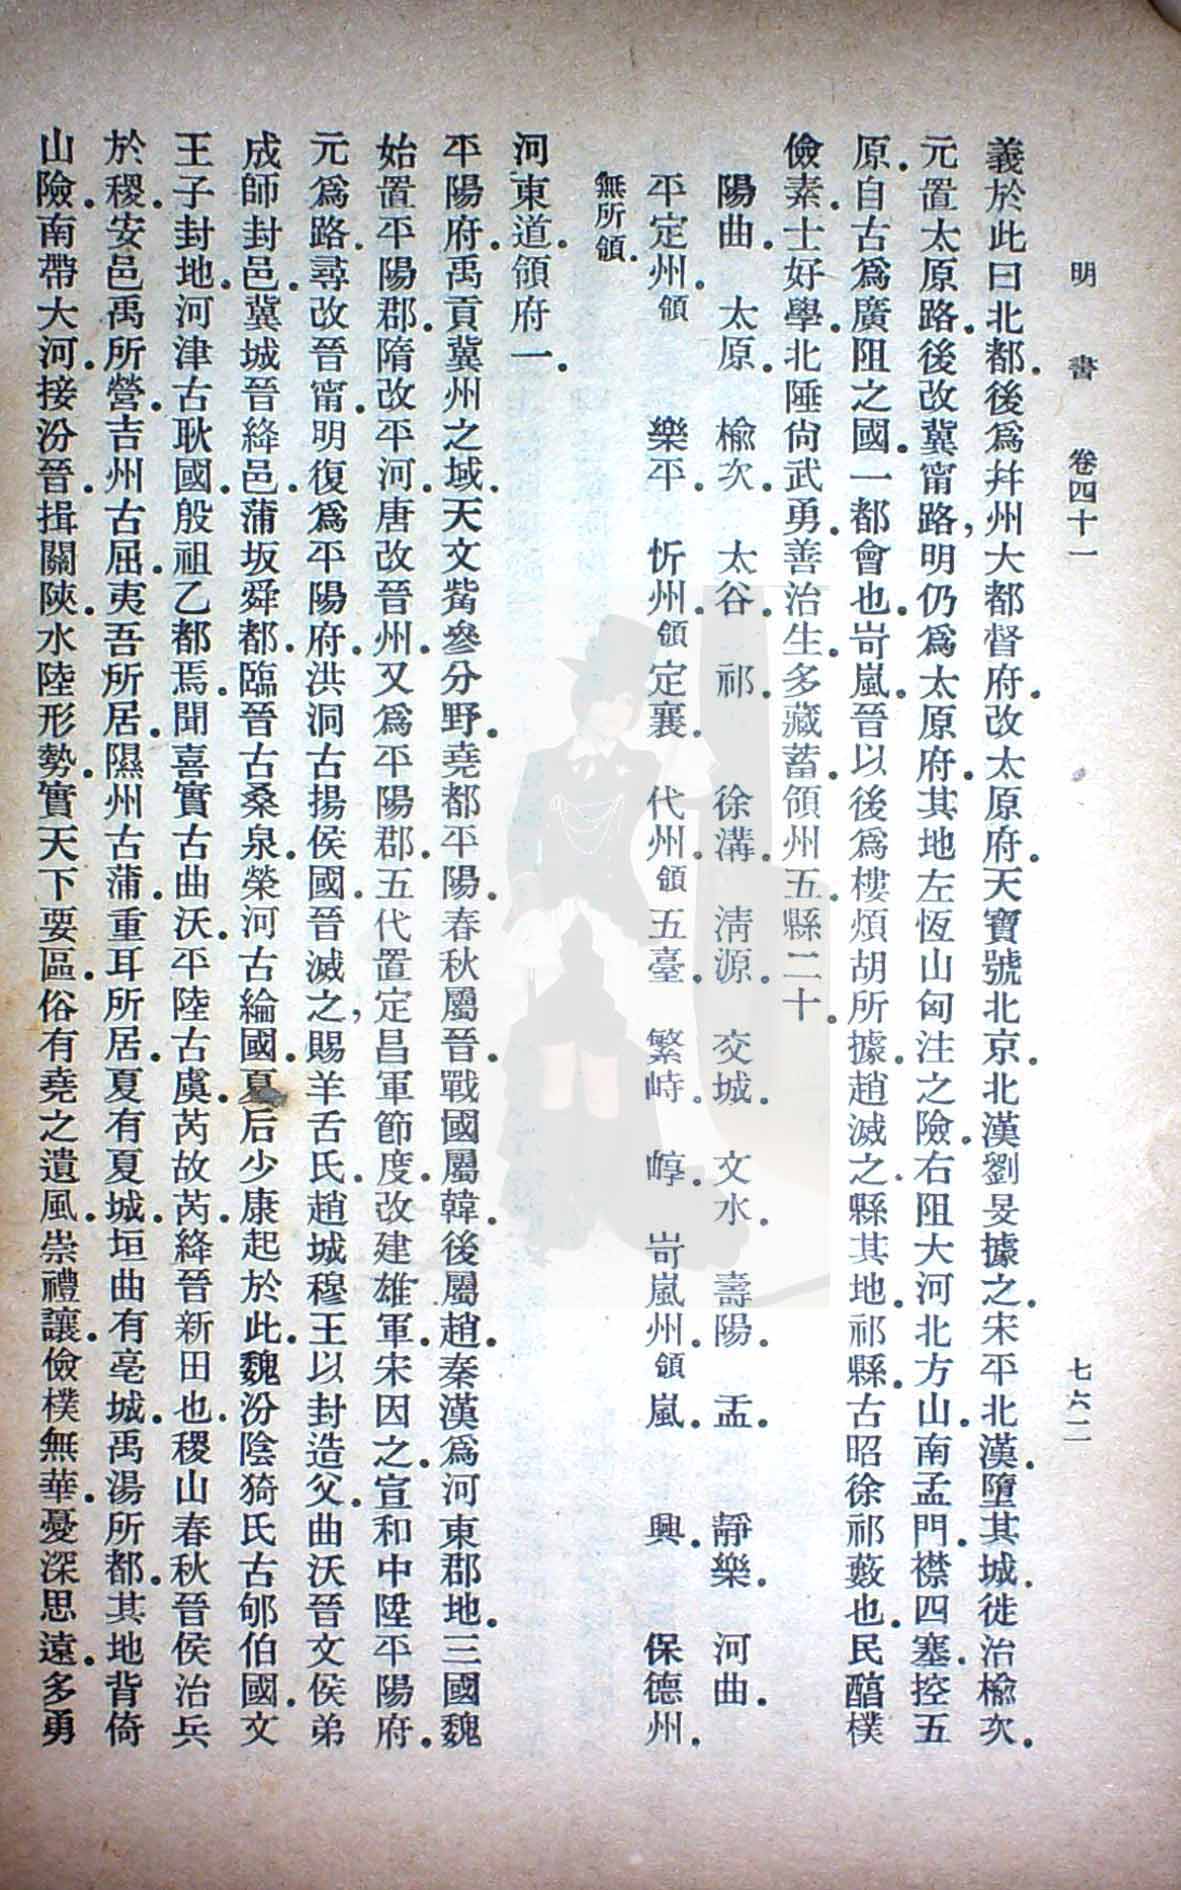 明書 卷四十一 七六二
義於此曰北都.後爲幷州大都督府.改太原府.天寶號北京.北漢劉旻據之.宋平北漢.墮其城.徙治楡次.
元置太原路.後改冀甯路,明仍爲太原府.其地左恆山匈注之險.右阻大河北方山.南孟門.襟四塞.控五
原.自古爲廣阻之國.一都會也.岢嵐.晉以後爲樓煩胡所據.趙滅之縣其地.祁縣.古昭徐祁藪也.民醕樸
儉素.士好學.北陲尙武勇.善治生.多藏蓄.領州五.縣二十.
陽曲. 太原. 楡次. 太谷. 祁. 徐溝. 淸源. 交城. 文水. 壽陽. 孟. 靜樂. 河曲.
平定州.領 樂平. 忻州.領 定襄. 代州.領 五臺. 繁峙. 崞. 岢嵐州.領 嵐. 興. 保德州.
無所領.
河東道.領府一.
平陽府.禹貢冀州之域.天文觜參分野.堯都平陽.春秋屬晉.戰國屬韓.後屬趙.秦漢爲河東郡地.三國魏
始置平陽郡.隋改平河.唐改晉州.又爲平陽郡.五代置定昌軍節度.改建雄軍.宋因之.宣和中陞平陽府.
元爲路.尋改晉甯.明復爲平陽府.洪洞古揚侯國.晉滅之,賜羊舌氏.趙城穆王以封造父.曲沃晉文侯弟
成師封邑.冀城晉絳邑.蒲坂舜都.臨晉古桑泉.榮河古綸國.夏后少康起於此.魏汾陰猗氏古郇伯國.文
王子封地.河津古耿國.殷祖乙都焉.聞喜實古曲沃.平陸古虞.芮故芮.絳晉新田也.稷山春秋晉侯治兵
於稷.安邑禹所營.吉州古屈.夷吾所居.隰州古蒲.重耳所居.夏有夏城.垣曲有亳城.禹湯所都.其地背倚
山險.南帶大河.接汾晉.揖關陝.水陸形勢.實天下要區.俗有堯之遺風.崇禮讓.儉樸無華.憂深思遠.多勇